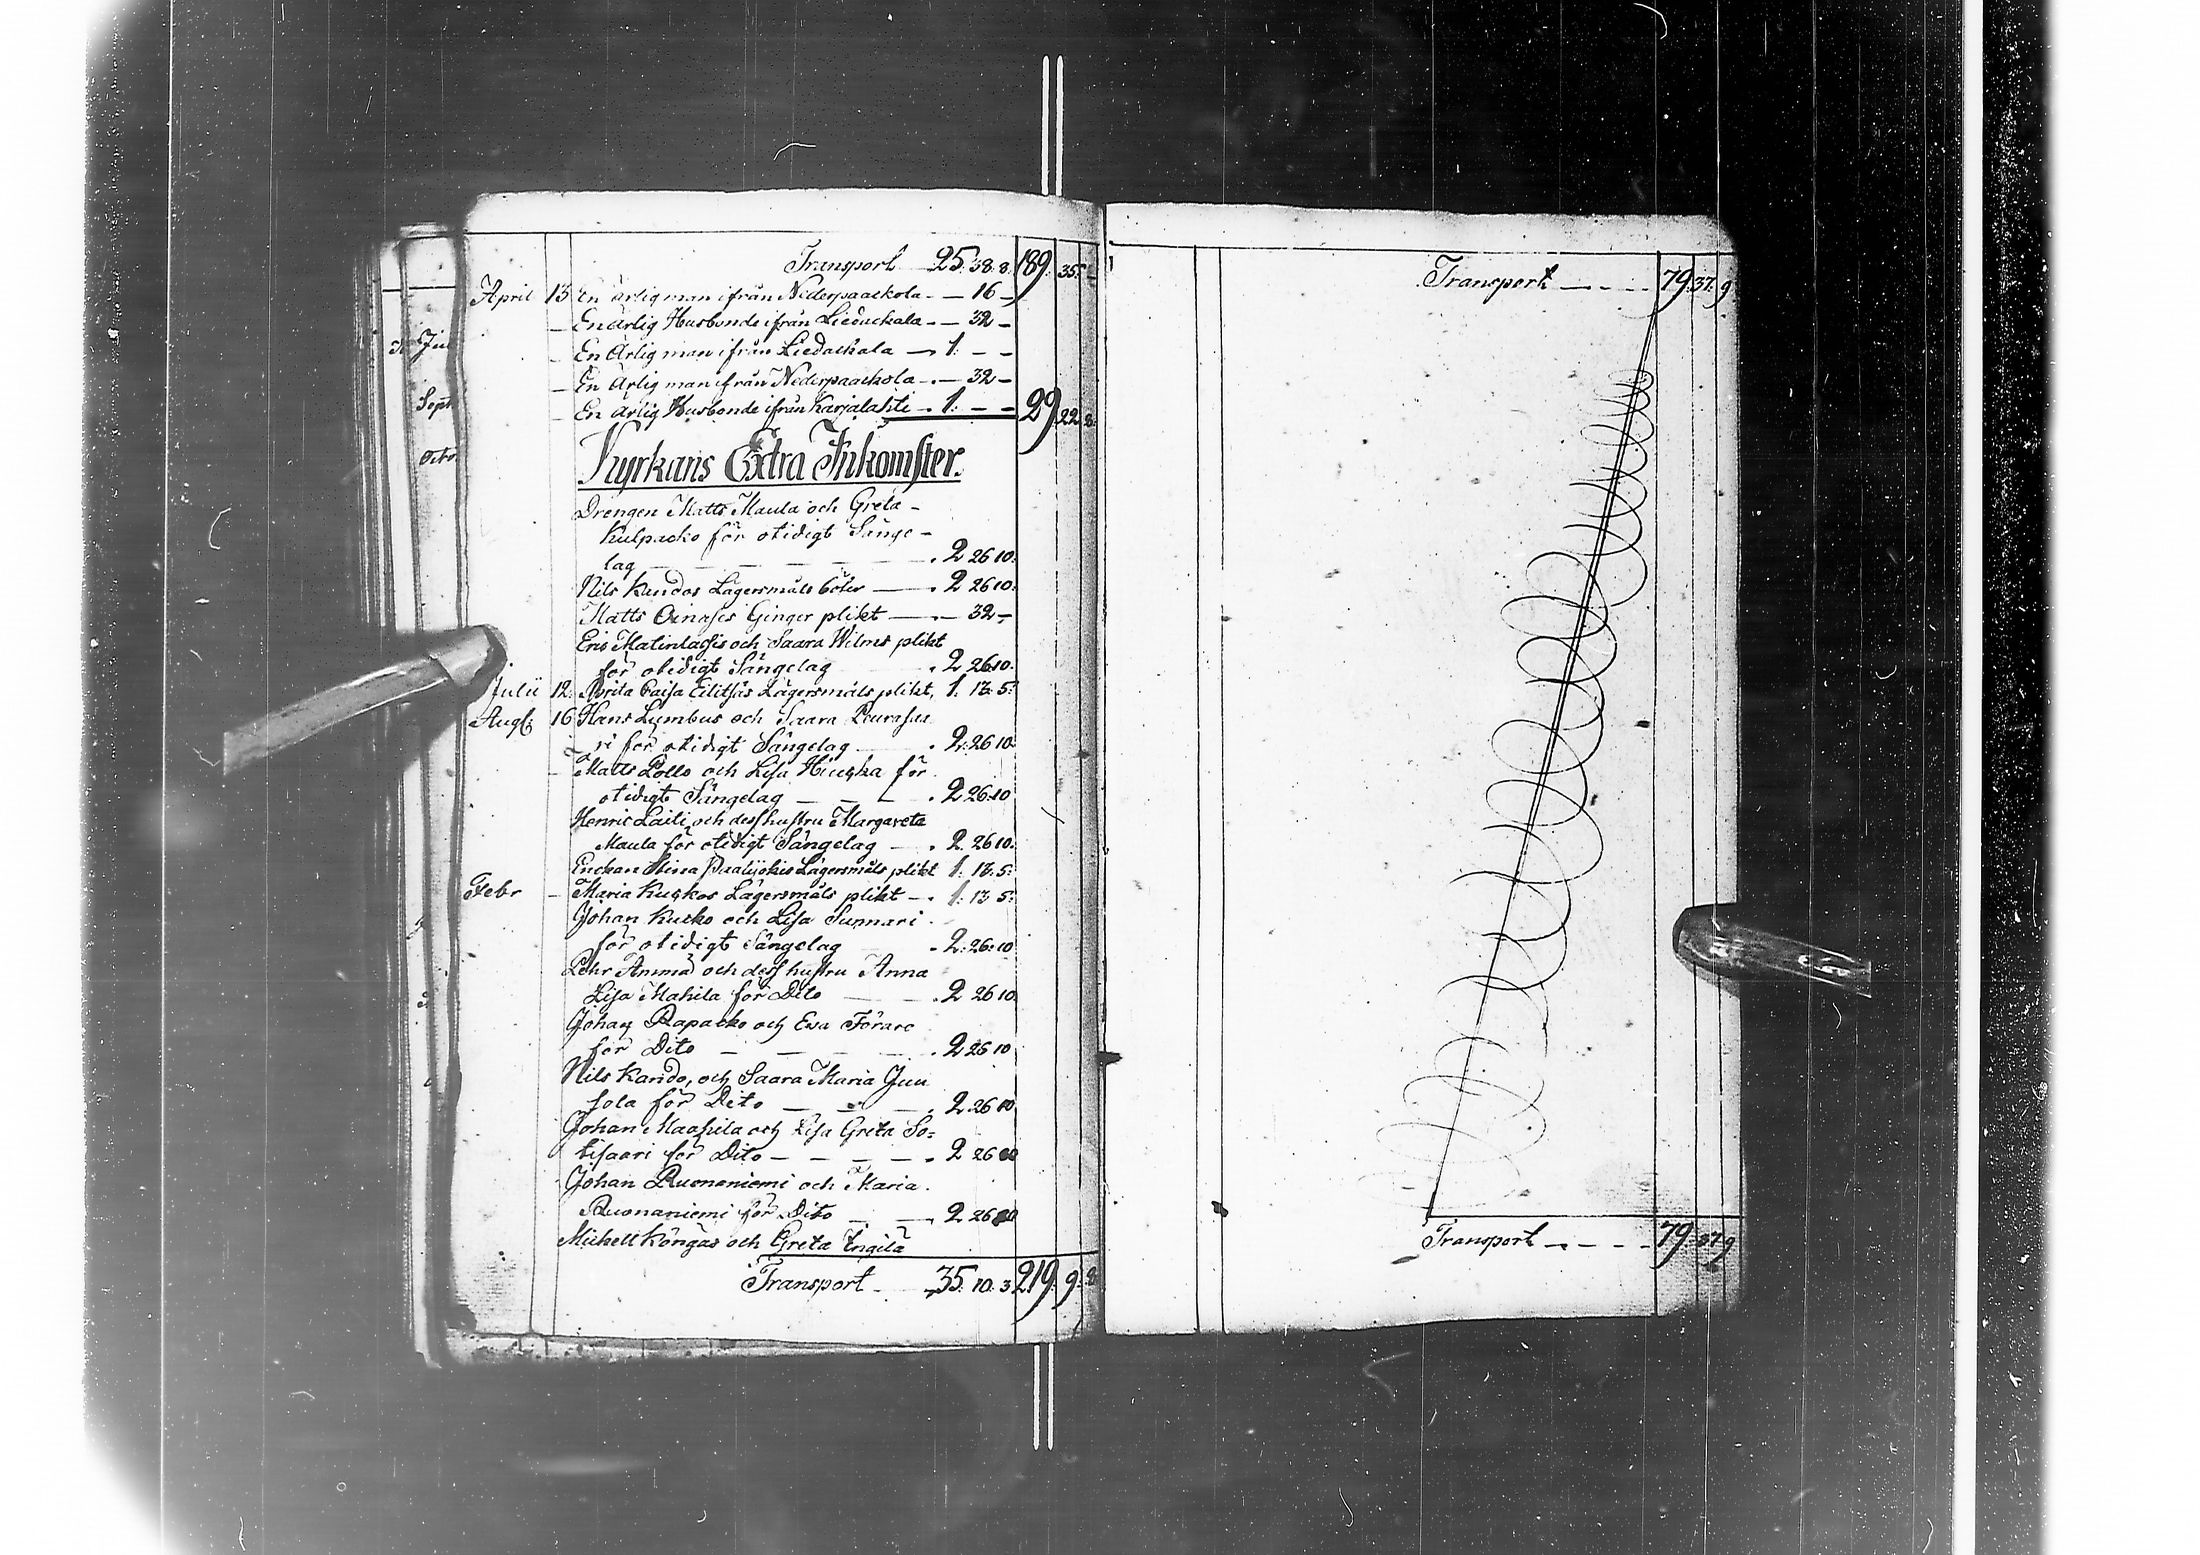 Transport 25. 38. 8. 189. 35.
April 13 En ärlig man ifrån Nederpaackola - - 16 -
- En ärlig Husbonde ifrån Liedackala - - 32 -
- En Ärlig man ifrån Liedackala - 1. - -
- En Ärlig man ifrån Nederpaackola - . - 32 -
- En ärlig Husbonde ifrån Karjalahti - . 1. - - 29. 22. 8.
Kyrkans Extra Inkomster.
Drengen Matts Maula och Greta -
Kulpacko för otidigt Sänge -
lag - - - - - - . 2. 26 10.
Nils Kandos Lägersmåls böter - . 2 26 10.
Matts Oinases Ginger plikt - . - 32 -
Eric Matinlassis och Saara Wilmis plikt
för otidigt Sängelag . 2 26 10.
Julii 12. Brita Caisa Lägersmåls plikt, 1. 13. 5.
Augs. 16 Hans Lumbus och Saara Pourasaa
ri för otidigt Sängelag . 2. 26 10.
- Matts Pollo och Lisa Hiuska för
otidigt Sängelag - - - . 2 26. 10
Henric Laiti och dess hustru Margareta
Maula för otidigt Sängelag - . 2. 26 10.
Enckan Stina Lägersmåls plikt 1. 13. 5.
Febr - Maria Kuskos Lägersmåls plikt - . 1. 13 5.
Johan Kusko och Lisa Sunnari
för otidigt Sängelag . 2. 26. 10
Pehr Ammä och dess hustru Anna
Lisa Mahila för Dito . 2 26 10.
Johan Rapacko och Eva Förare
för Dito - - - - . 2 26 10
Nils Kando, och Saara Maria Juu
sola för Dito - - - . 2. 26 10
Johan Maahila och Lisa Greta So=
tisaari för Dito - - - - . 2 26 10
Johan Ruonaniemi och Maria
Ruonaniemi för Dito - - . 2 26 10
Michell Köngäs och Greta Engilä
Transport - 35. 10. 3 219. 9. 8
Jul
Sept
Octo
Transport - - - - 79. 37. 9
Transport - - - - 79. 37. 9